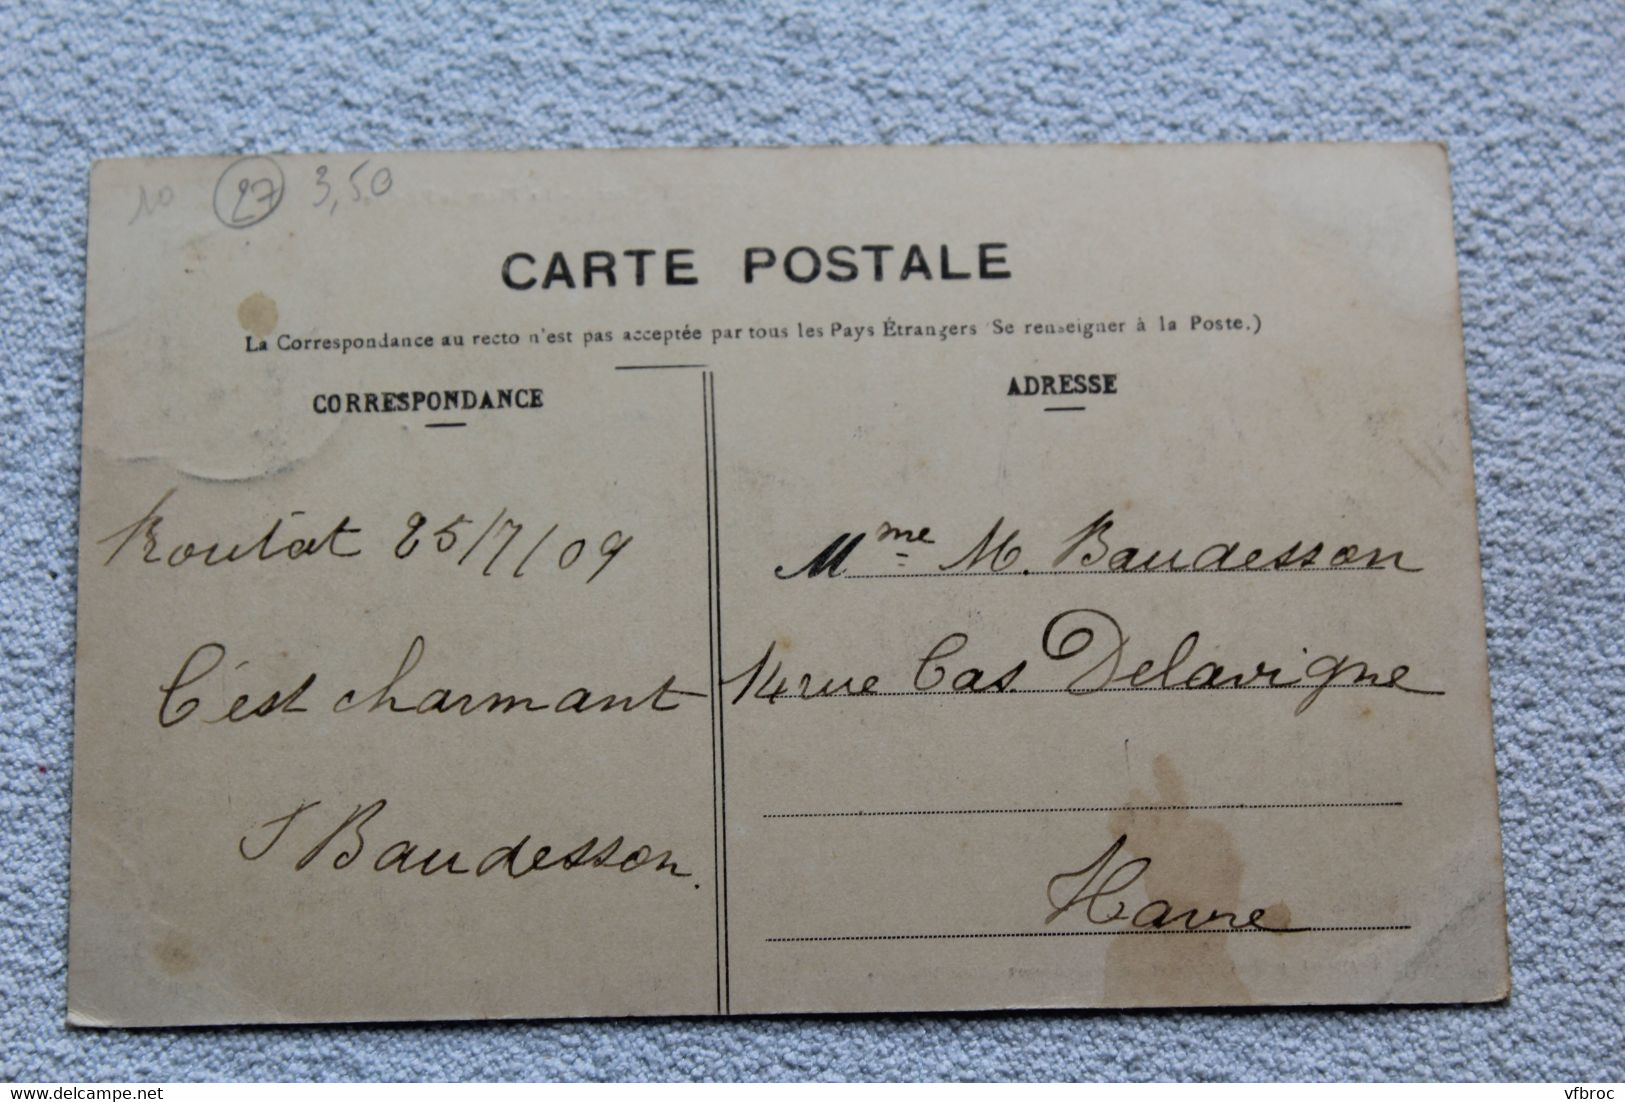 10 27 3,50
CARTE POSTALE
La Correspondance au recto n'est pas acceptée par tous les Pays Étrangers (Se renseigner à la Poste.)
CORRESPONDANCE
Routot 25/7/09
C'est charmant
Baudesson.
ADRESSE
Mme M. Baudesson
14 rue Cas. Delavigne
Havre
www.delcampe.net
vfbroc